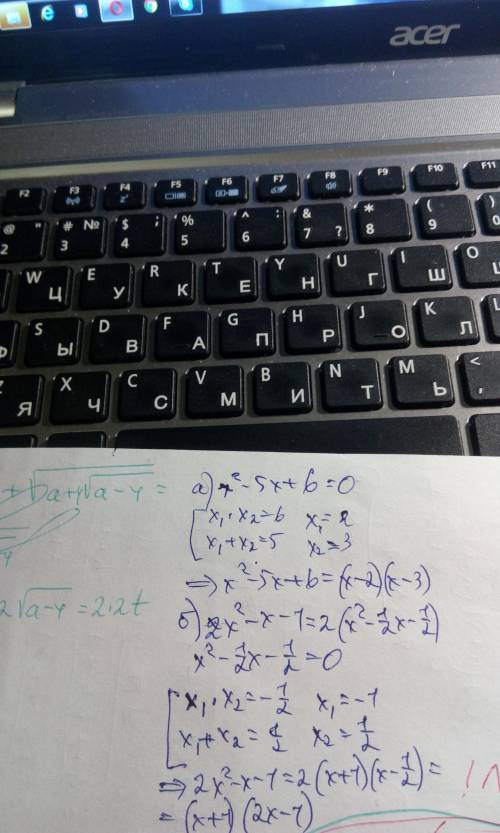 acer
F2 F3 F4 F5 F6 F7 F8 F9 F10 F11
@ " 2 # № 3 $ ; 4 % 5 ^ : 6 & 7 ? * 8 ( 9 ) 0
W Ц E У R К T Е Y Н U Г I Ш O
Ф S Ы D В F А G П H Р J О K Л L
Z Я X Ч C С V М B И N Т M Ь < ,
а) x² - 5x + 6 = 0
x₁ · x₂ = 6 x₁ = 2
x₁ + x₂ = 5 x₂ = 3
⇒ x² - 5x + 6 = (x - 2)(x - 3)
2√(a-4) = 2·2t
б) 2x² - x - 1 = 2(x² - 1/2x - 1/2)
x² - 1/2x - 1/2 = 0
x₁ · x₂ = -1/2 x₁ = -1
x₁ + x₂ = 1/2 x₂ = 1/2
⇒ 2x² - x - 1 = 2(x + 1)(x - 1/2) =
= (x + 1)(2x - 1)